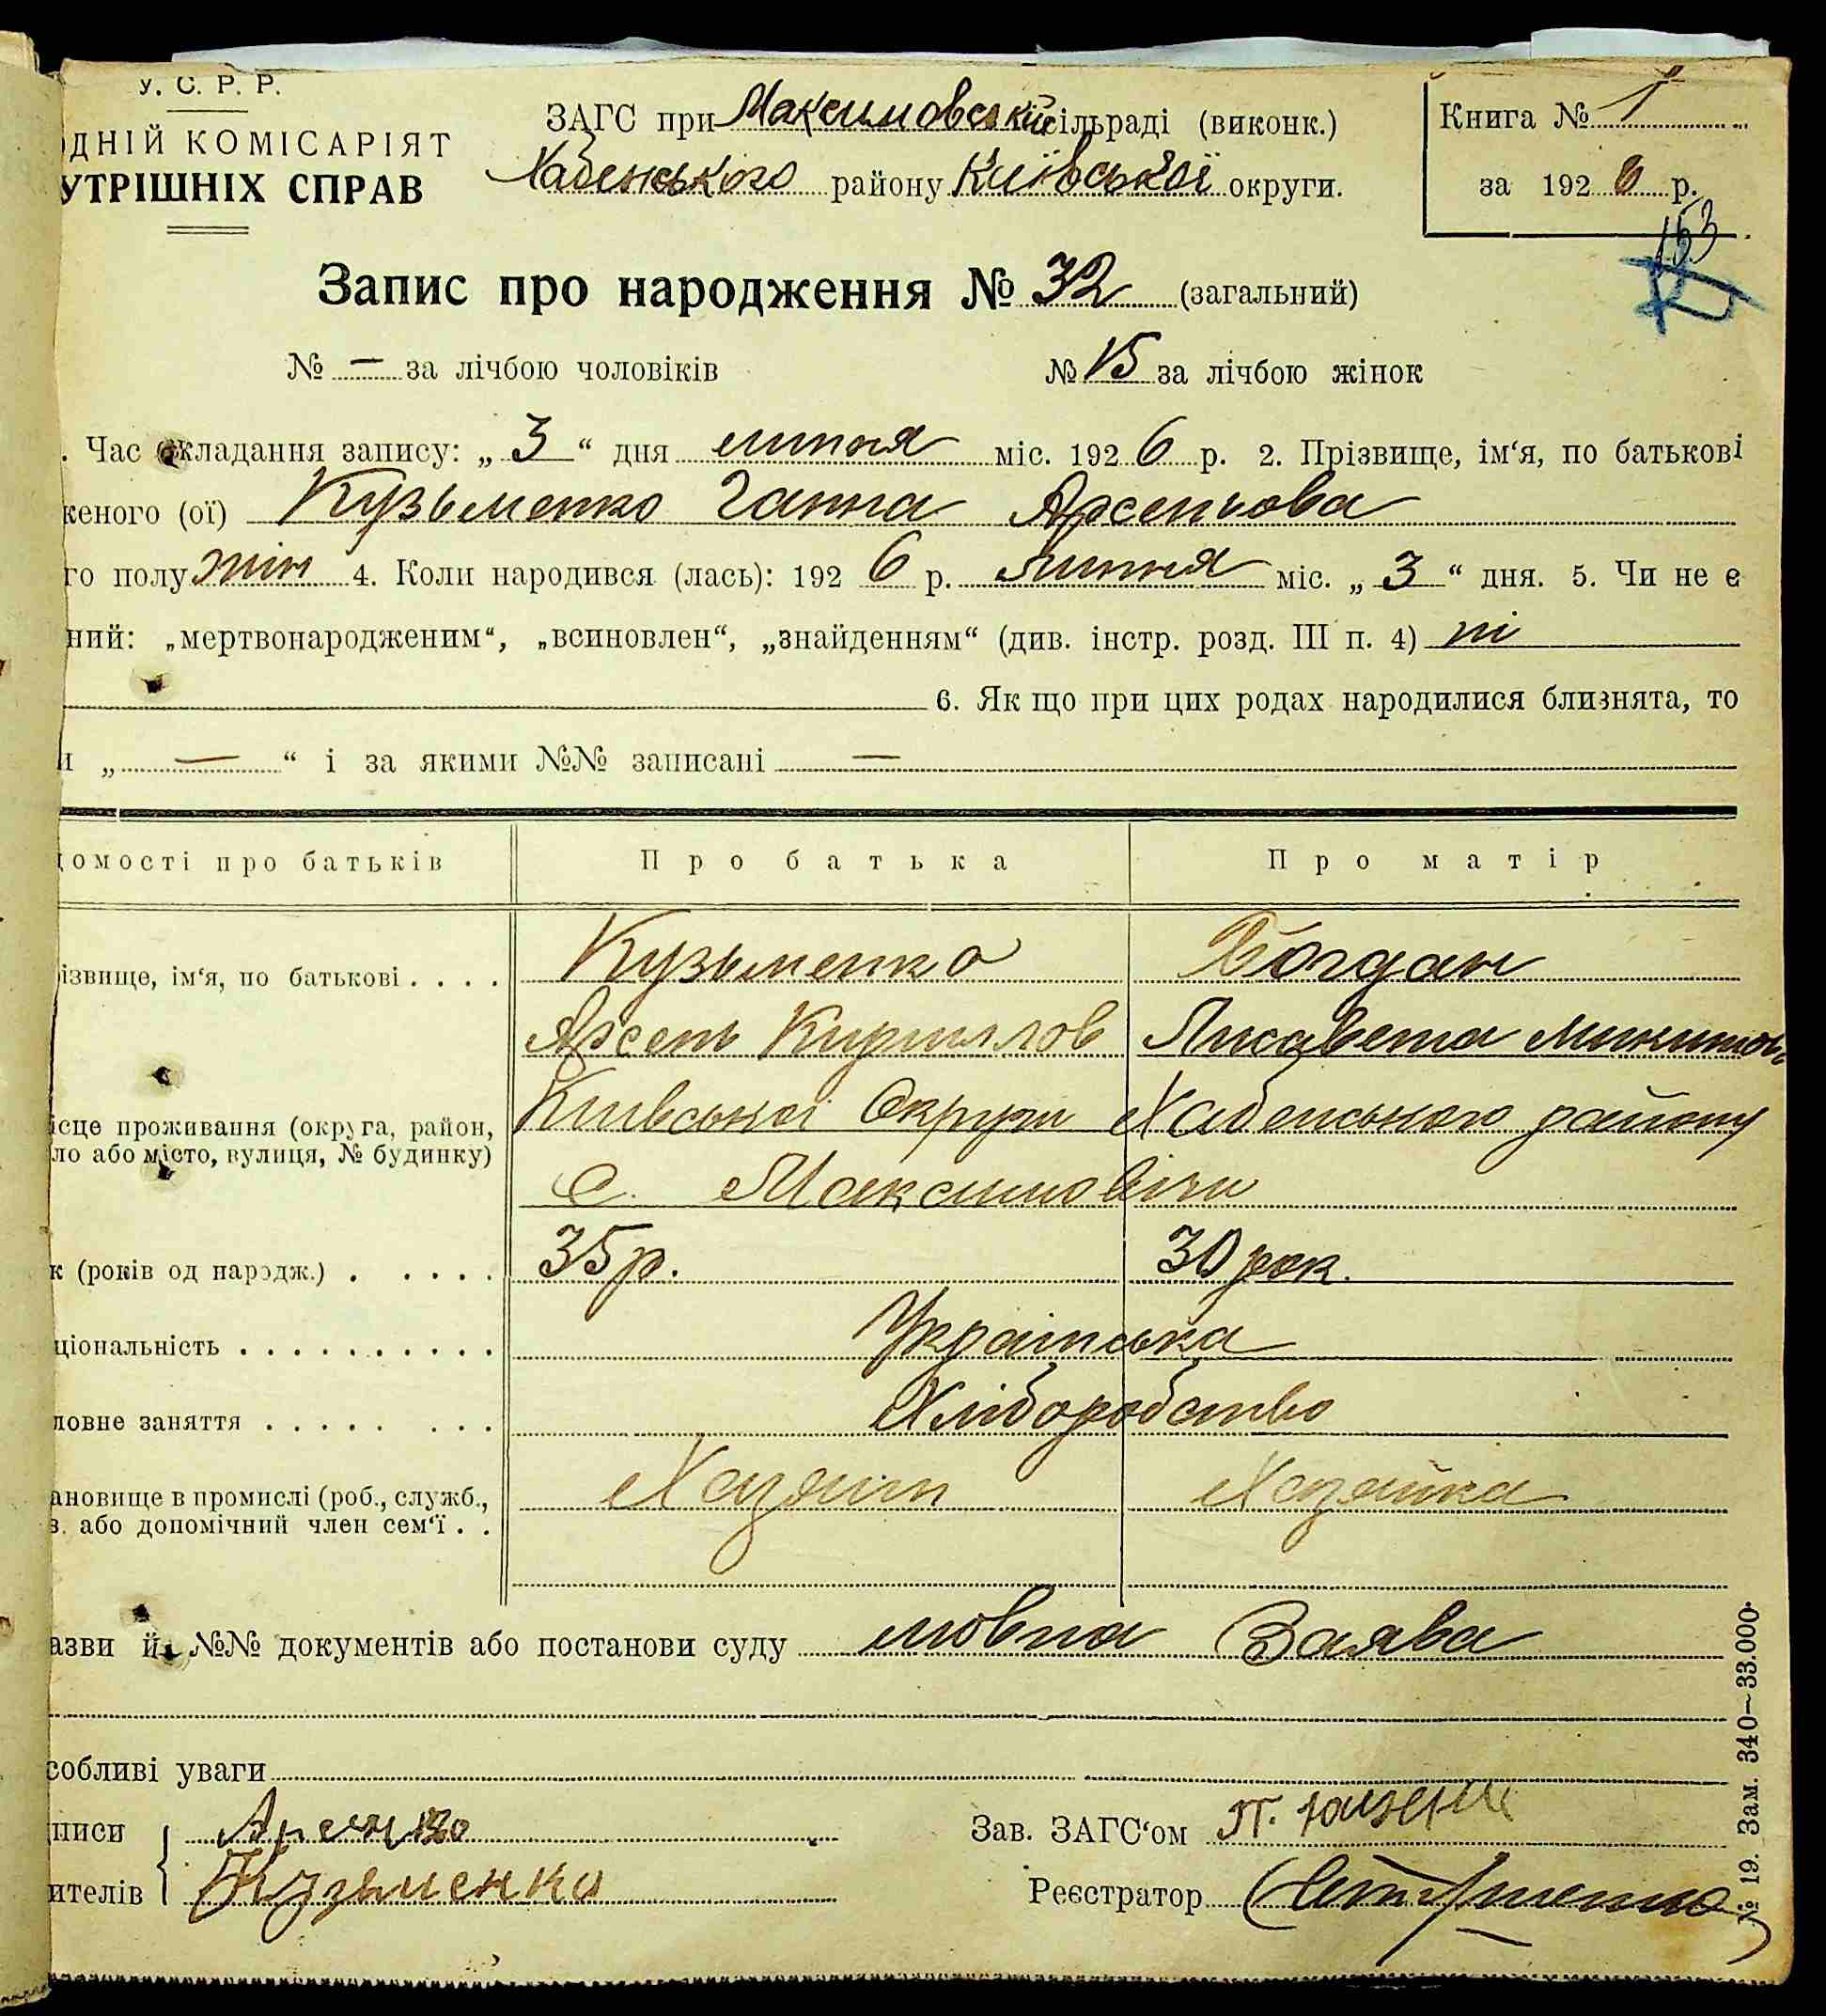 У. С. Р. Р.
ОДНІЙ КОМІСАРІЯТ
УТРІШНІХ СПРАВ
ЗАГС при Максимовській сільраді (виконк.)
Хабенського району Київської округи.
Книга № 1
за 1926 р.
153
Запис про народження № 32 (загальний)
№ — за лічбою чоловіків № 15 за лічбою жінок
. Час складання запису: „ 3 “ дня липня міс. 1926 р. 2. Прізвище, ім‘я, по батькові
женого (ої) Кузьменко Ганна Арсеньова
го полу жін 4. Коли народився (лась): 1926 р. липня міс. „ 3 “ дня. 5. Чи не є
ний: „мертвонародженим“, „всиновлен“, „знайденням“ (див. інстр. розд. III п. 4) ні
6. Як що при цих родах народилися близнята, то
и „ — “ і за якими №№ записані —
домості про батьків Про батька Про матір
ізвище, ім‘я, по батькові . . . . Кузьменко Богдан
Арсень Кириллов Лисавета Микитов
ісце проживання (округа, район, Київської Округи Хабенського району
ло або місто, вулиця, № будинку)
с. Максимовічи
к (років од народж.) . . . . . 35 р. 30 рок.
ціональність . . . . . . . . . . . Українська
ловне заняття . . . . . . . . Хліборобство
ановище в промислі (роб., служб., Хазяїн Хазяйка
з. або допомічний член сем‘ї . .
азви й №№ документів або постанови суду мовна Заява
собливі уваги
писи
ителів Кузьменко
Зав. ЗАГС‘ом П.
Реєстратор
№ 19. Зам. 340—33.000.